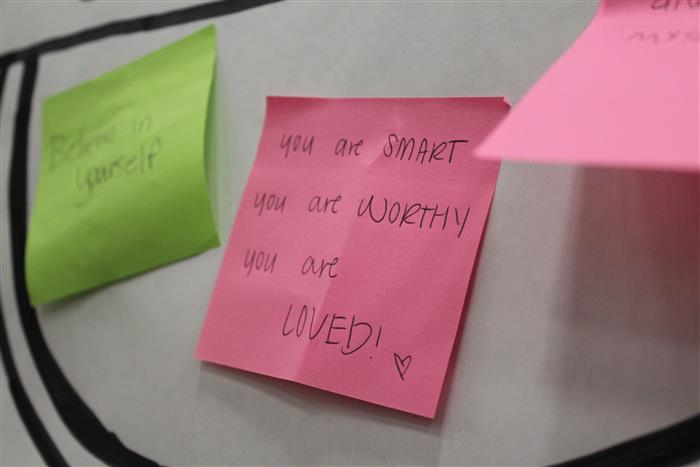 Believe in
yourself
you are SMART
you are WORTHY
you are
LOVED!